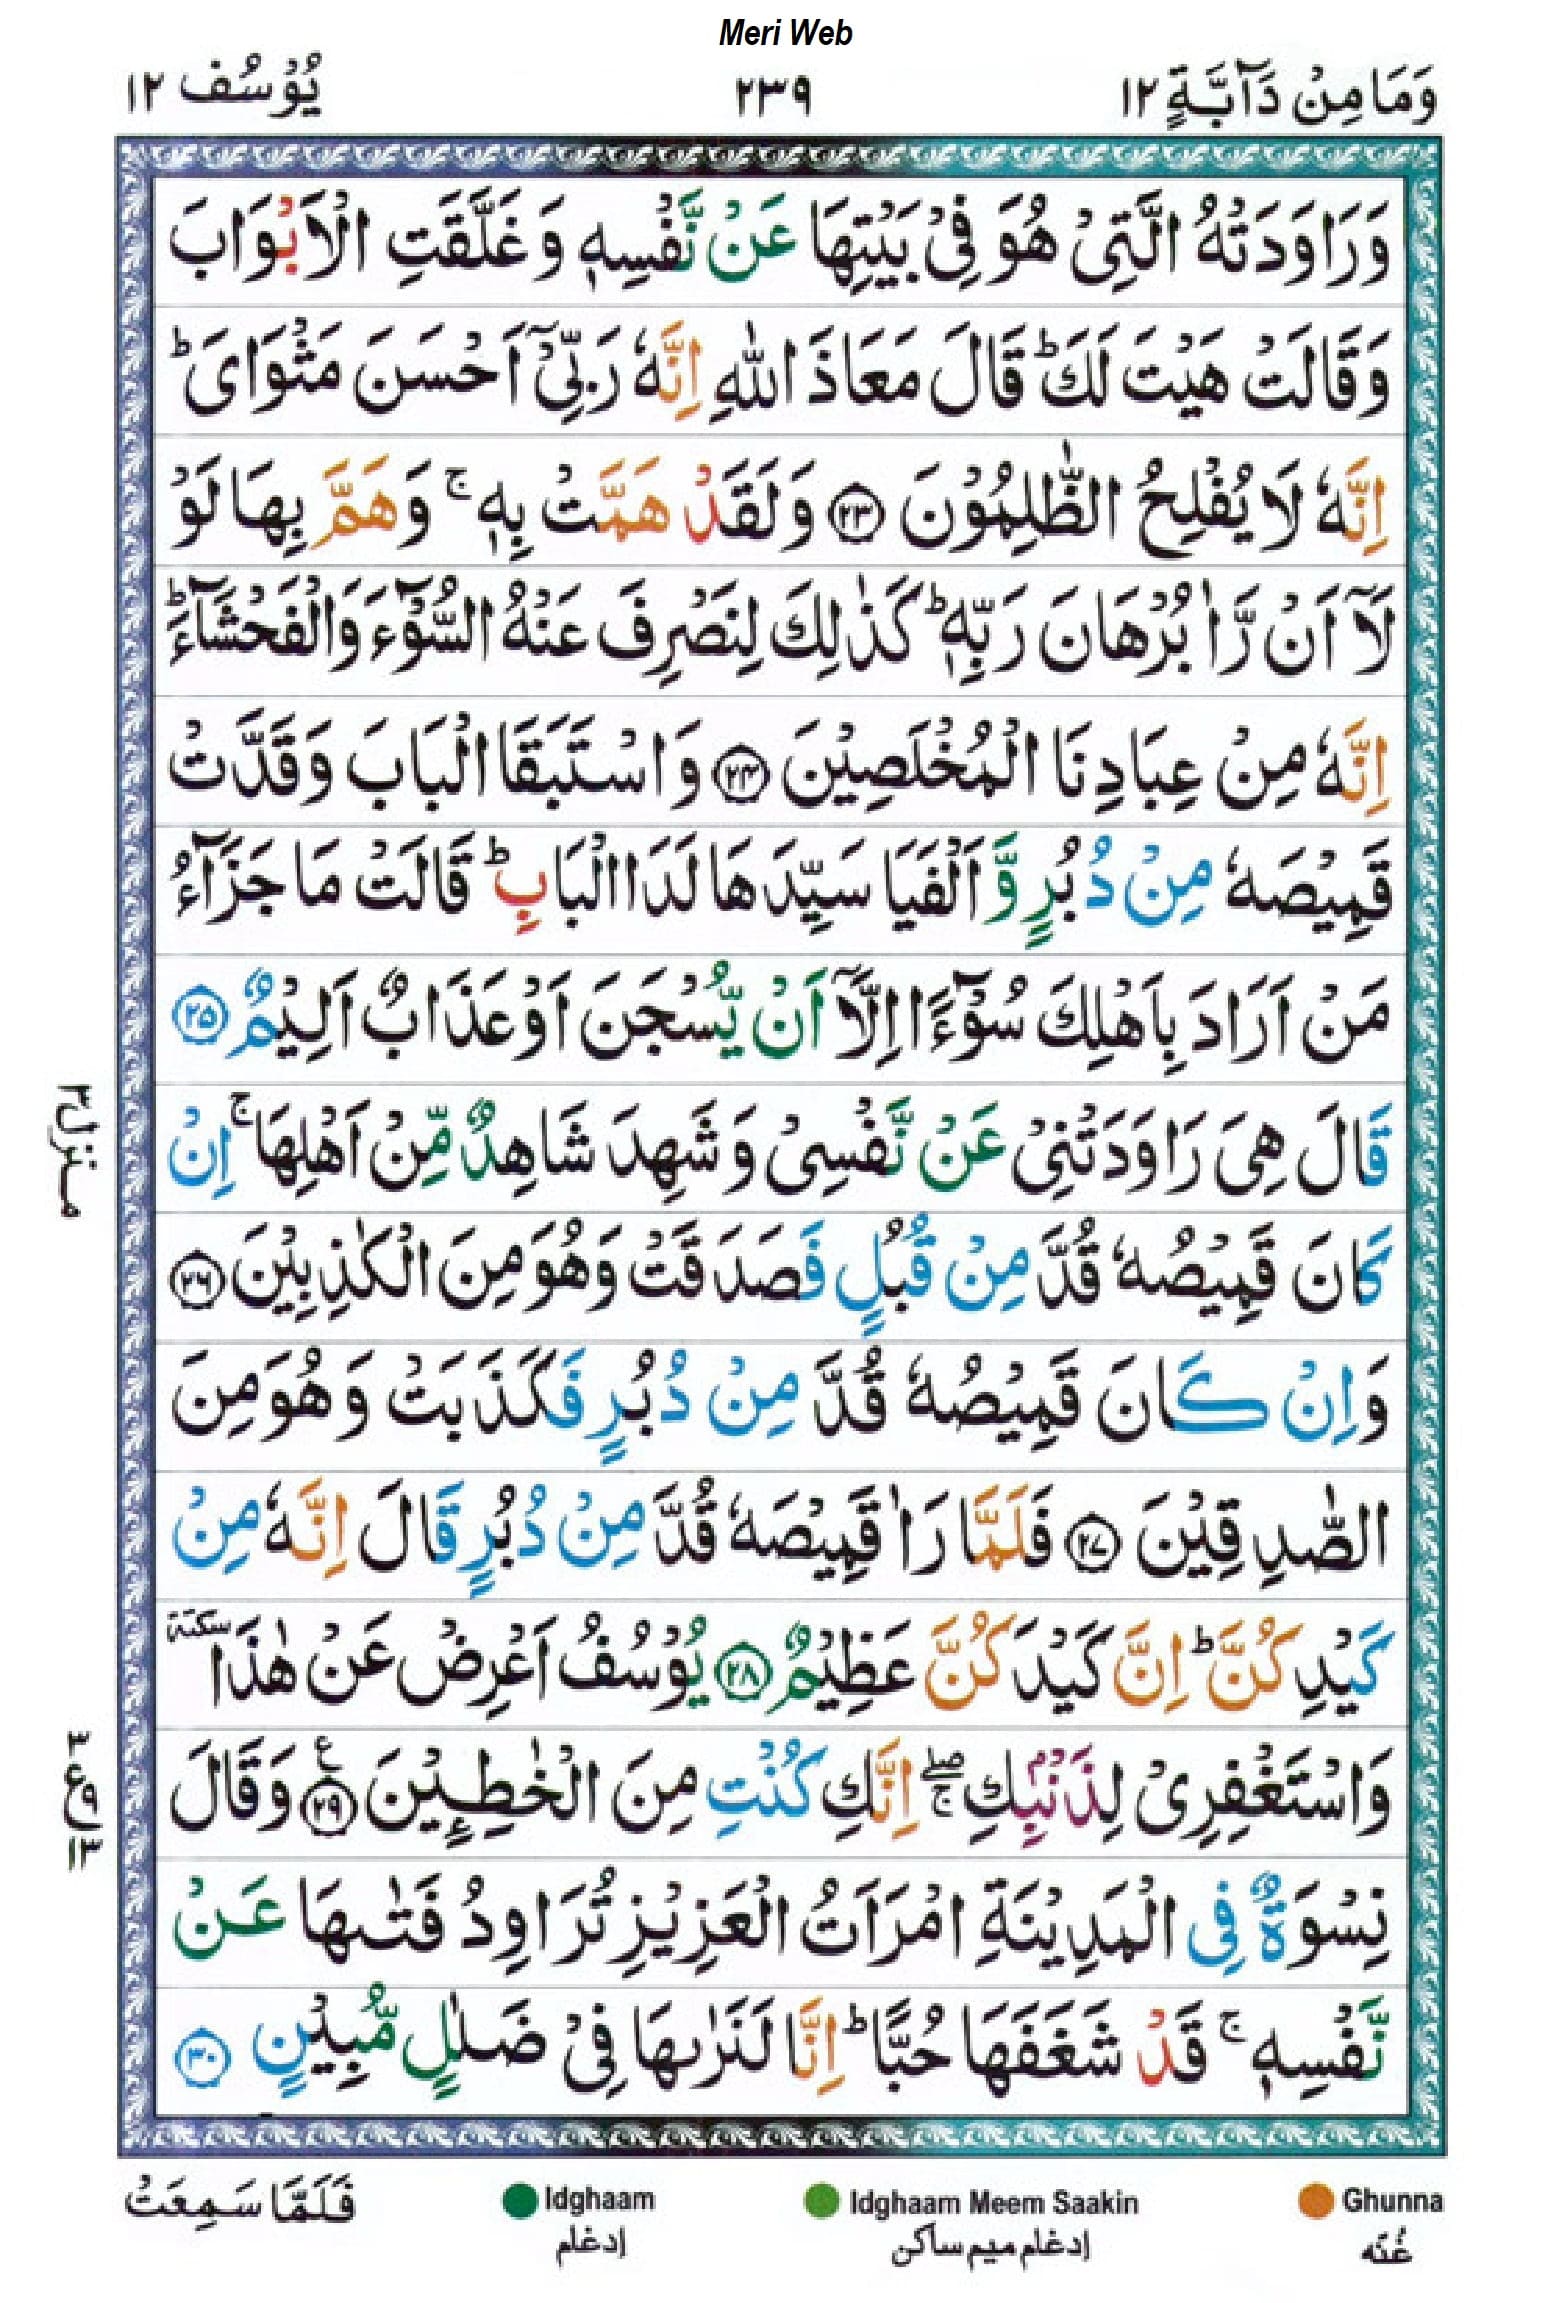 Meri Web
وَمَا مِنْ دَآبَّةٍ ١٢
٢٣٩
يُوْسُف ١٢
وَرَاوَدَتْهُ الَّتِیْ هُوَ فِیْ بَیْتِهَا عَنْ نَّفْسِهٖ وَ غَلَّقَتِ الْاَبْوَابَ
وَقَالَتْ هَیْتَ لَكَ ؕ قَالَ مَعَاذَ اللّٰهِ اِنَّهٗ رَبِّیْۤ اَحْسَنَ مَثْوَایَ ؕ
اِنَّهٗ لَا یُفْلِحُ الظّٰلِمُوْنَ ۝٢٣ وَلَقَدْ هَمَّتْ بِهٖ ۚ وَهَمَّ بِهَا لَوْ
لَاۤ اَنْ رَّاٰ بُرْهَانَ رَبِّهٖ ؕ كَذٰلِكَ لِنَصْرِفَ عَنْهُ السُّوْٓءَ وَالْفَحْشَآءَ ؕ
اِنَّهٗ مِنْ عِبَادِنَا الْمُخْلَصِیْنَ ۝٢٤ وَاسْتَبَقَا الْبَابَ وَقَدَّتْ
قَمِیْصَهٗ مِنْ دُبُرٍ وَّ اَلْفَیَا سَیِّدَهَا لَدَا الْبَابِ ؕ قَالَتْ مَا جَزَآءُ
مَنْ اَرَادَ بِاَهْلِكَ سُوْٓءًا اِلَّاۤ اَنْ یُّسْجَنَ اَوْ عَذَابٌ اَلِیْمٌ ۝٢٥
قَالَ هِیَ رَاوَدَتْنِیْ عَنْ نَّفْسِیْ وَشَهِدَ شَاهِدٌ مِّنْ اَهْلِهَا ۚ اِنْ
كَانَ قَمِیْصُهٗ قُدَّ مِنْ قُبُلٍ فَصَدَقَتْ وَهُوَ مِنَ الْكٰذِبِیْنَ ۝٢٦
وَاِنْ كَانَ قَمِیْصُهٗ قُدَّ مِنْ دُبُرٍ فَكَذَبَتْ وَهُوَ مِنَ
الصّٰدِقِیْنَ ۝٢٧ فَلَمَّا رَاٰ قَمِیْصَهٗ قُدَّ مِنْ دُبُرٍ قَالَ اِنَّهٗ مِنْ
كَیْدِكُنَّ ؕ اِنَّ كَیْدَكُنَّ عَظِیْمٌ ۝٢٨ یُوْسُفُ اَعْرِضْ عَنْ هٰذَا سكتة
وَاسْتَغْفِرِیْ لِذَنْۢبِكِ ۖۚ اِنَّكِ كُنْتِ مِنَ الْخٰطِـِٕیْنَ ۝٢٩ع وَقَالَ
نِسْوَةٌ فِی الْمَدِیْنَةِ امْرَاَتُ الْعَزِیْزِ تُرَاوِدُ فَتٰىهَا عَنْ
نَّفْسِهٖ ۚ قَدْ شَغَفَهَا حُبًّا ؕ اِنَّا لَنَرٰىهَا فِیْ ضَلٰلٍ مُّبِیْنٍ ۝٣٠
منزل٣
٣
ع٩
١٣
فَلَمَّا سَمِعَتْ
Idghaam
إدغام
Idghaam Meem Saakin
إدغام ميم ساكن
Ghunna
غُنّه